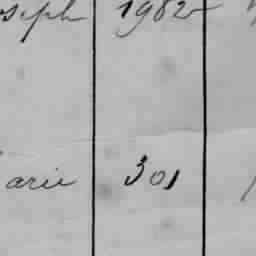 oseph 1982
arie 301